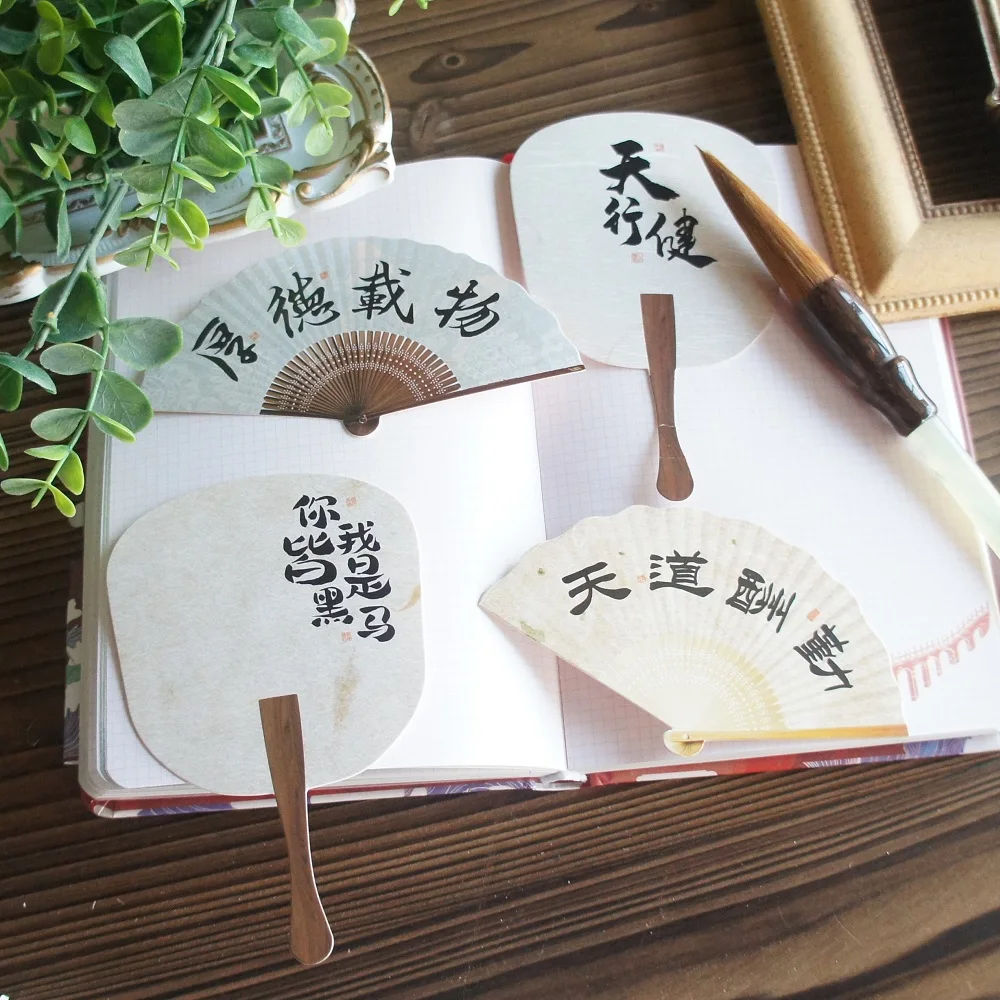 天
行健
厚德載物
你我
皆是
黑马
天道酬勤